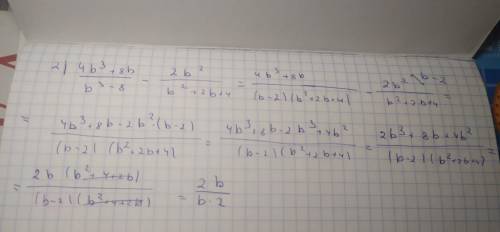 2) (4b³+8b)/(b³-8) - 2b²/(b²+2b+4) = (4b³+8b)/((b-2)(b²+2b+4)) - 2b² \b-2/(b²+2b+4) =
= (4b³+8b-2b²·(b-2))/((b-2)(b²+2b+4)) = (4b³+8b-2b³+4b²)/((b-2)(b²+2b+4)) = (2b³+8b+4b²)/((b-2)(b²+2b+4))
= (2b(b²+4+2b))/((b-2)(b²+4+2b)) = 2b/(b-2)